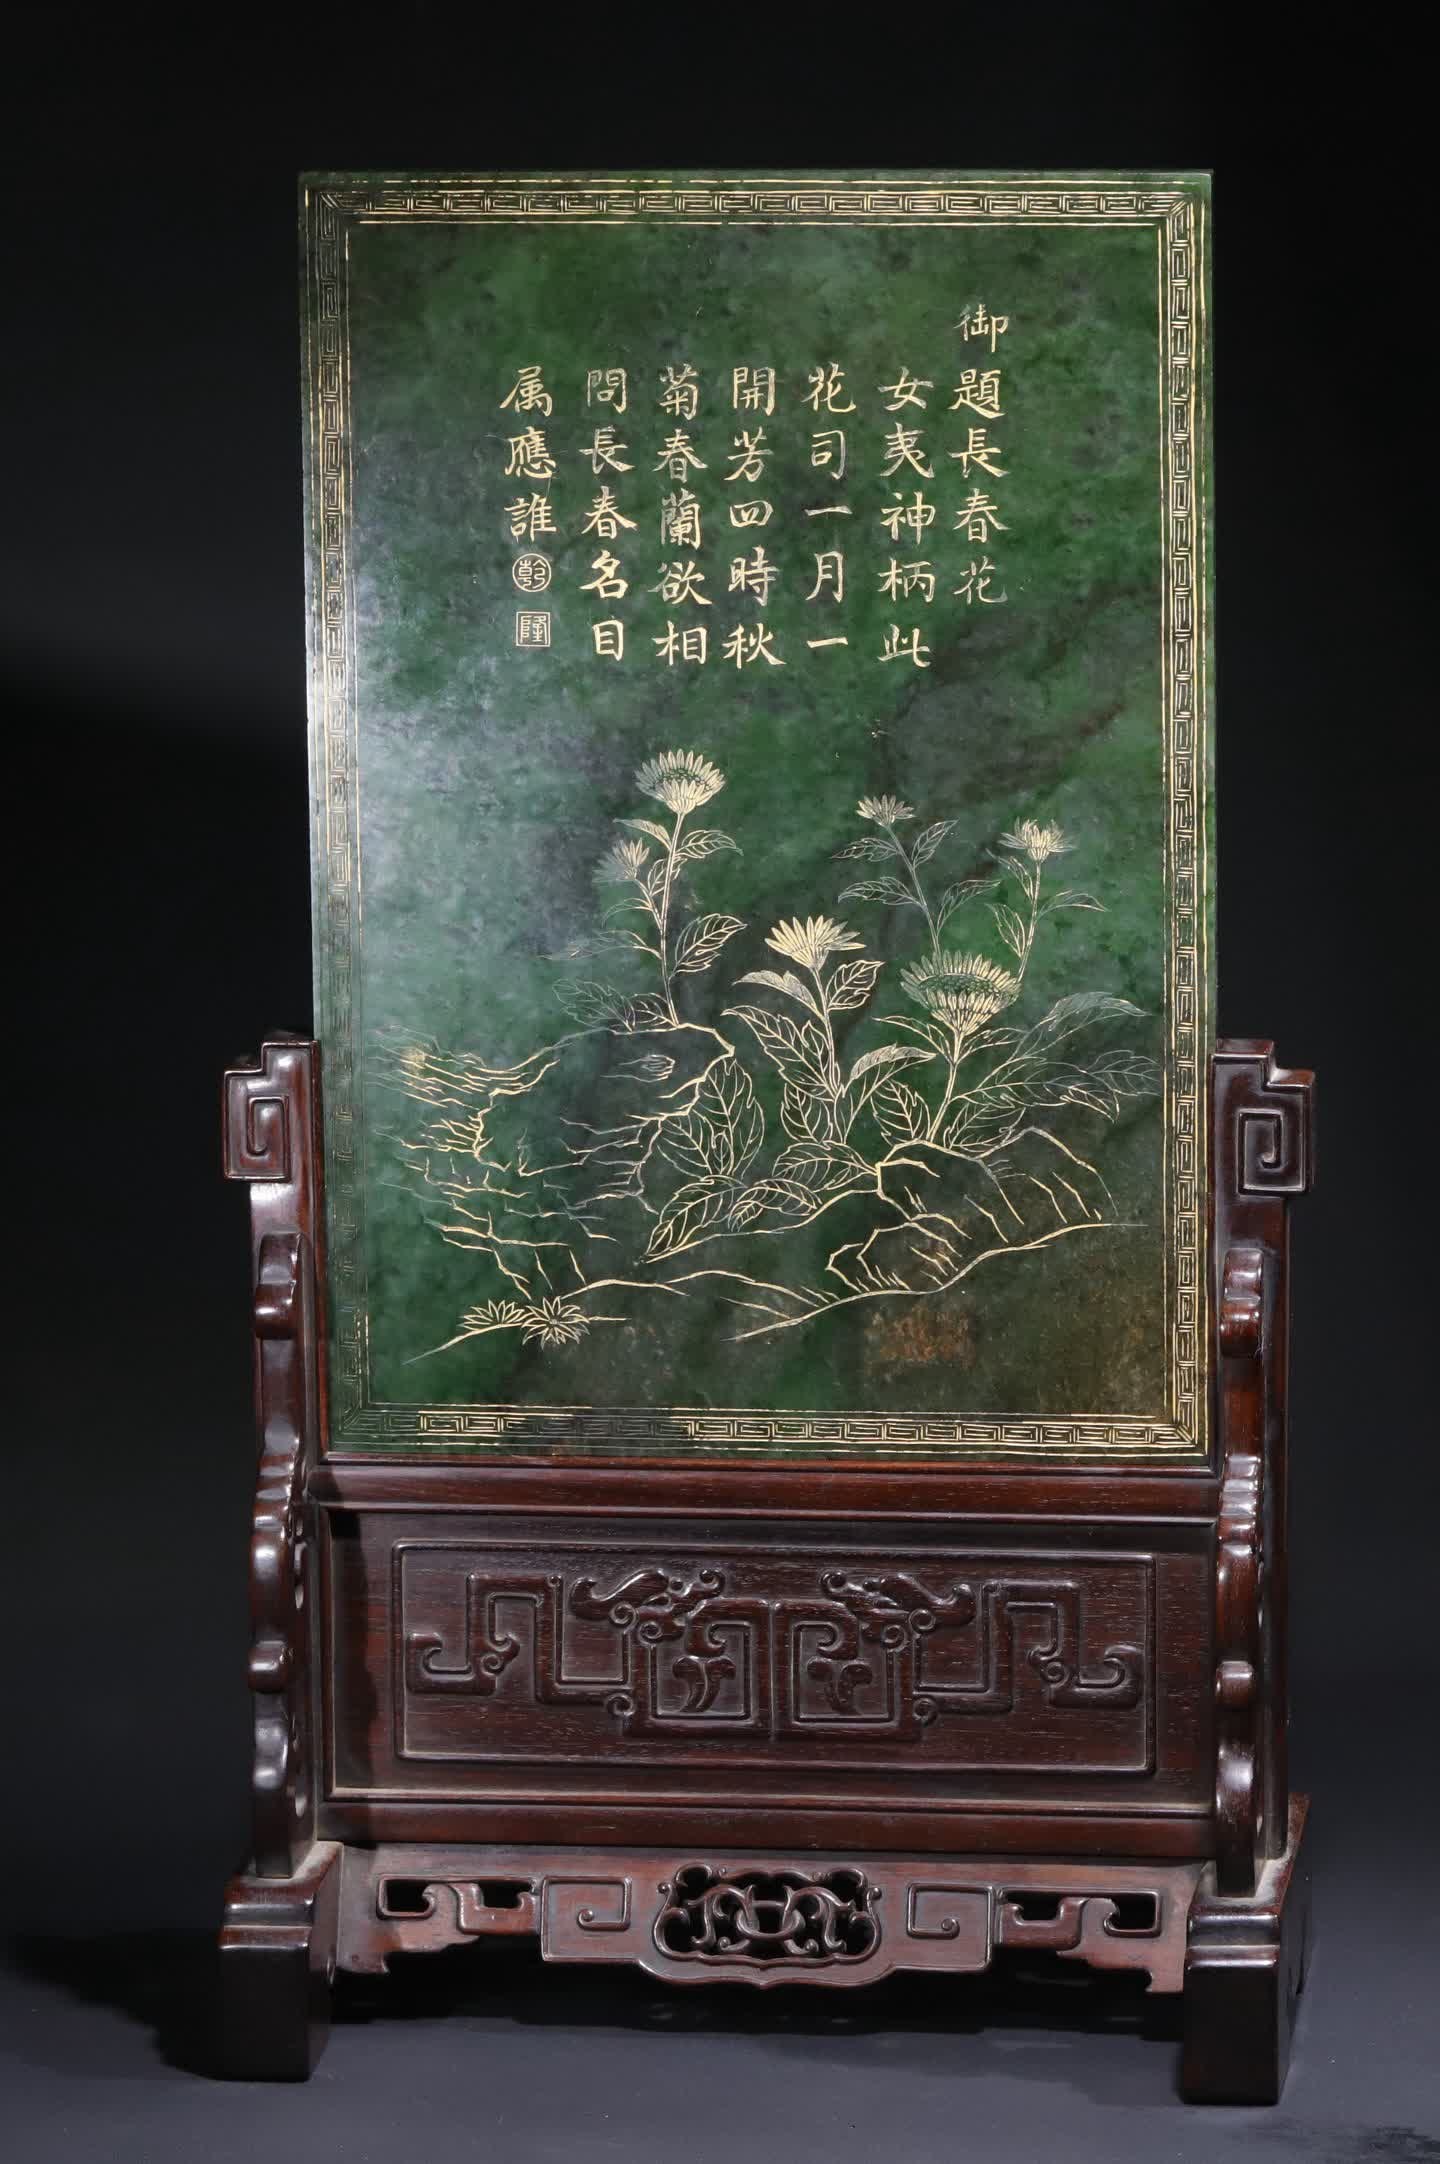 御題長春花
女夷神柄此
花司一月一
開芳四時秋
菊春蘭欲相
問長春名目
属應誰
乾
隆